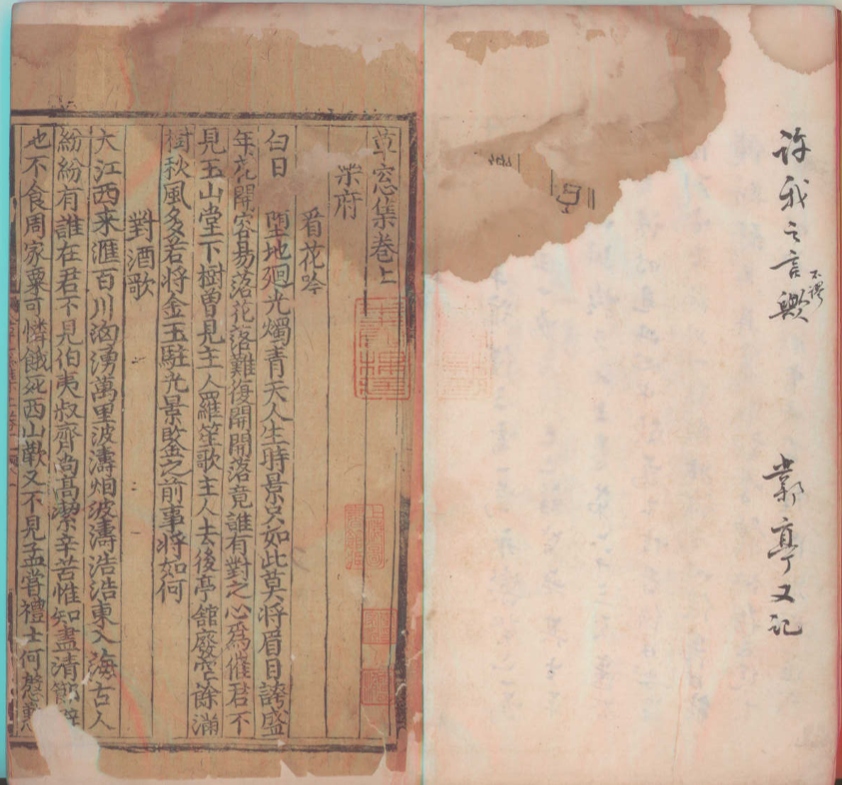 許我之言歟
不謬
郘亭又記
草窓集卷上
樂府
看花吟
白日 墮地廻光燭青天人生時景只如此莫將眉目誇盛
年花開容易落花落難復開開落竟誰有對之心爲催君不
見玉山堂下樹曽見主人羅笙歌主人去後亭舘廢空餘滿
樹秋風多若將金玉駐光景鍳之前事將如何
對酒歌
大江西来滙百川洶湧萬里波濤烟波濤浩浩東入海古人
紛紛有誰在君不見伯夷叔齊尚髙潔辛苦惟知盡清節
也不食周家粟可憐餓死西山歡又不見孟嘗禮士何慇